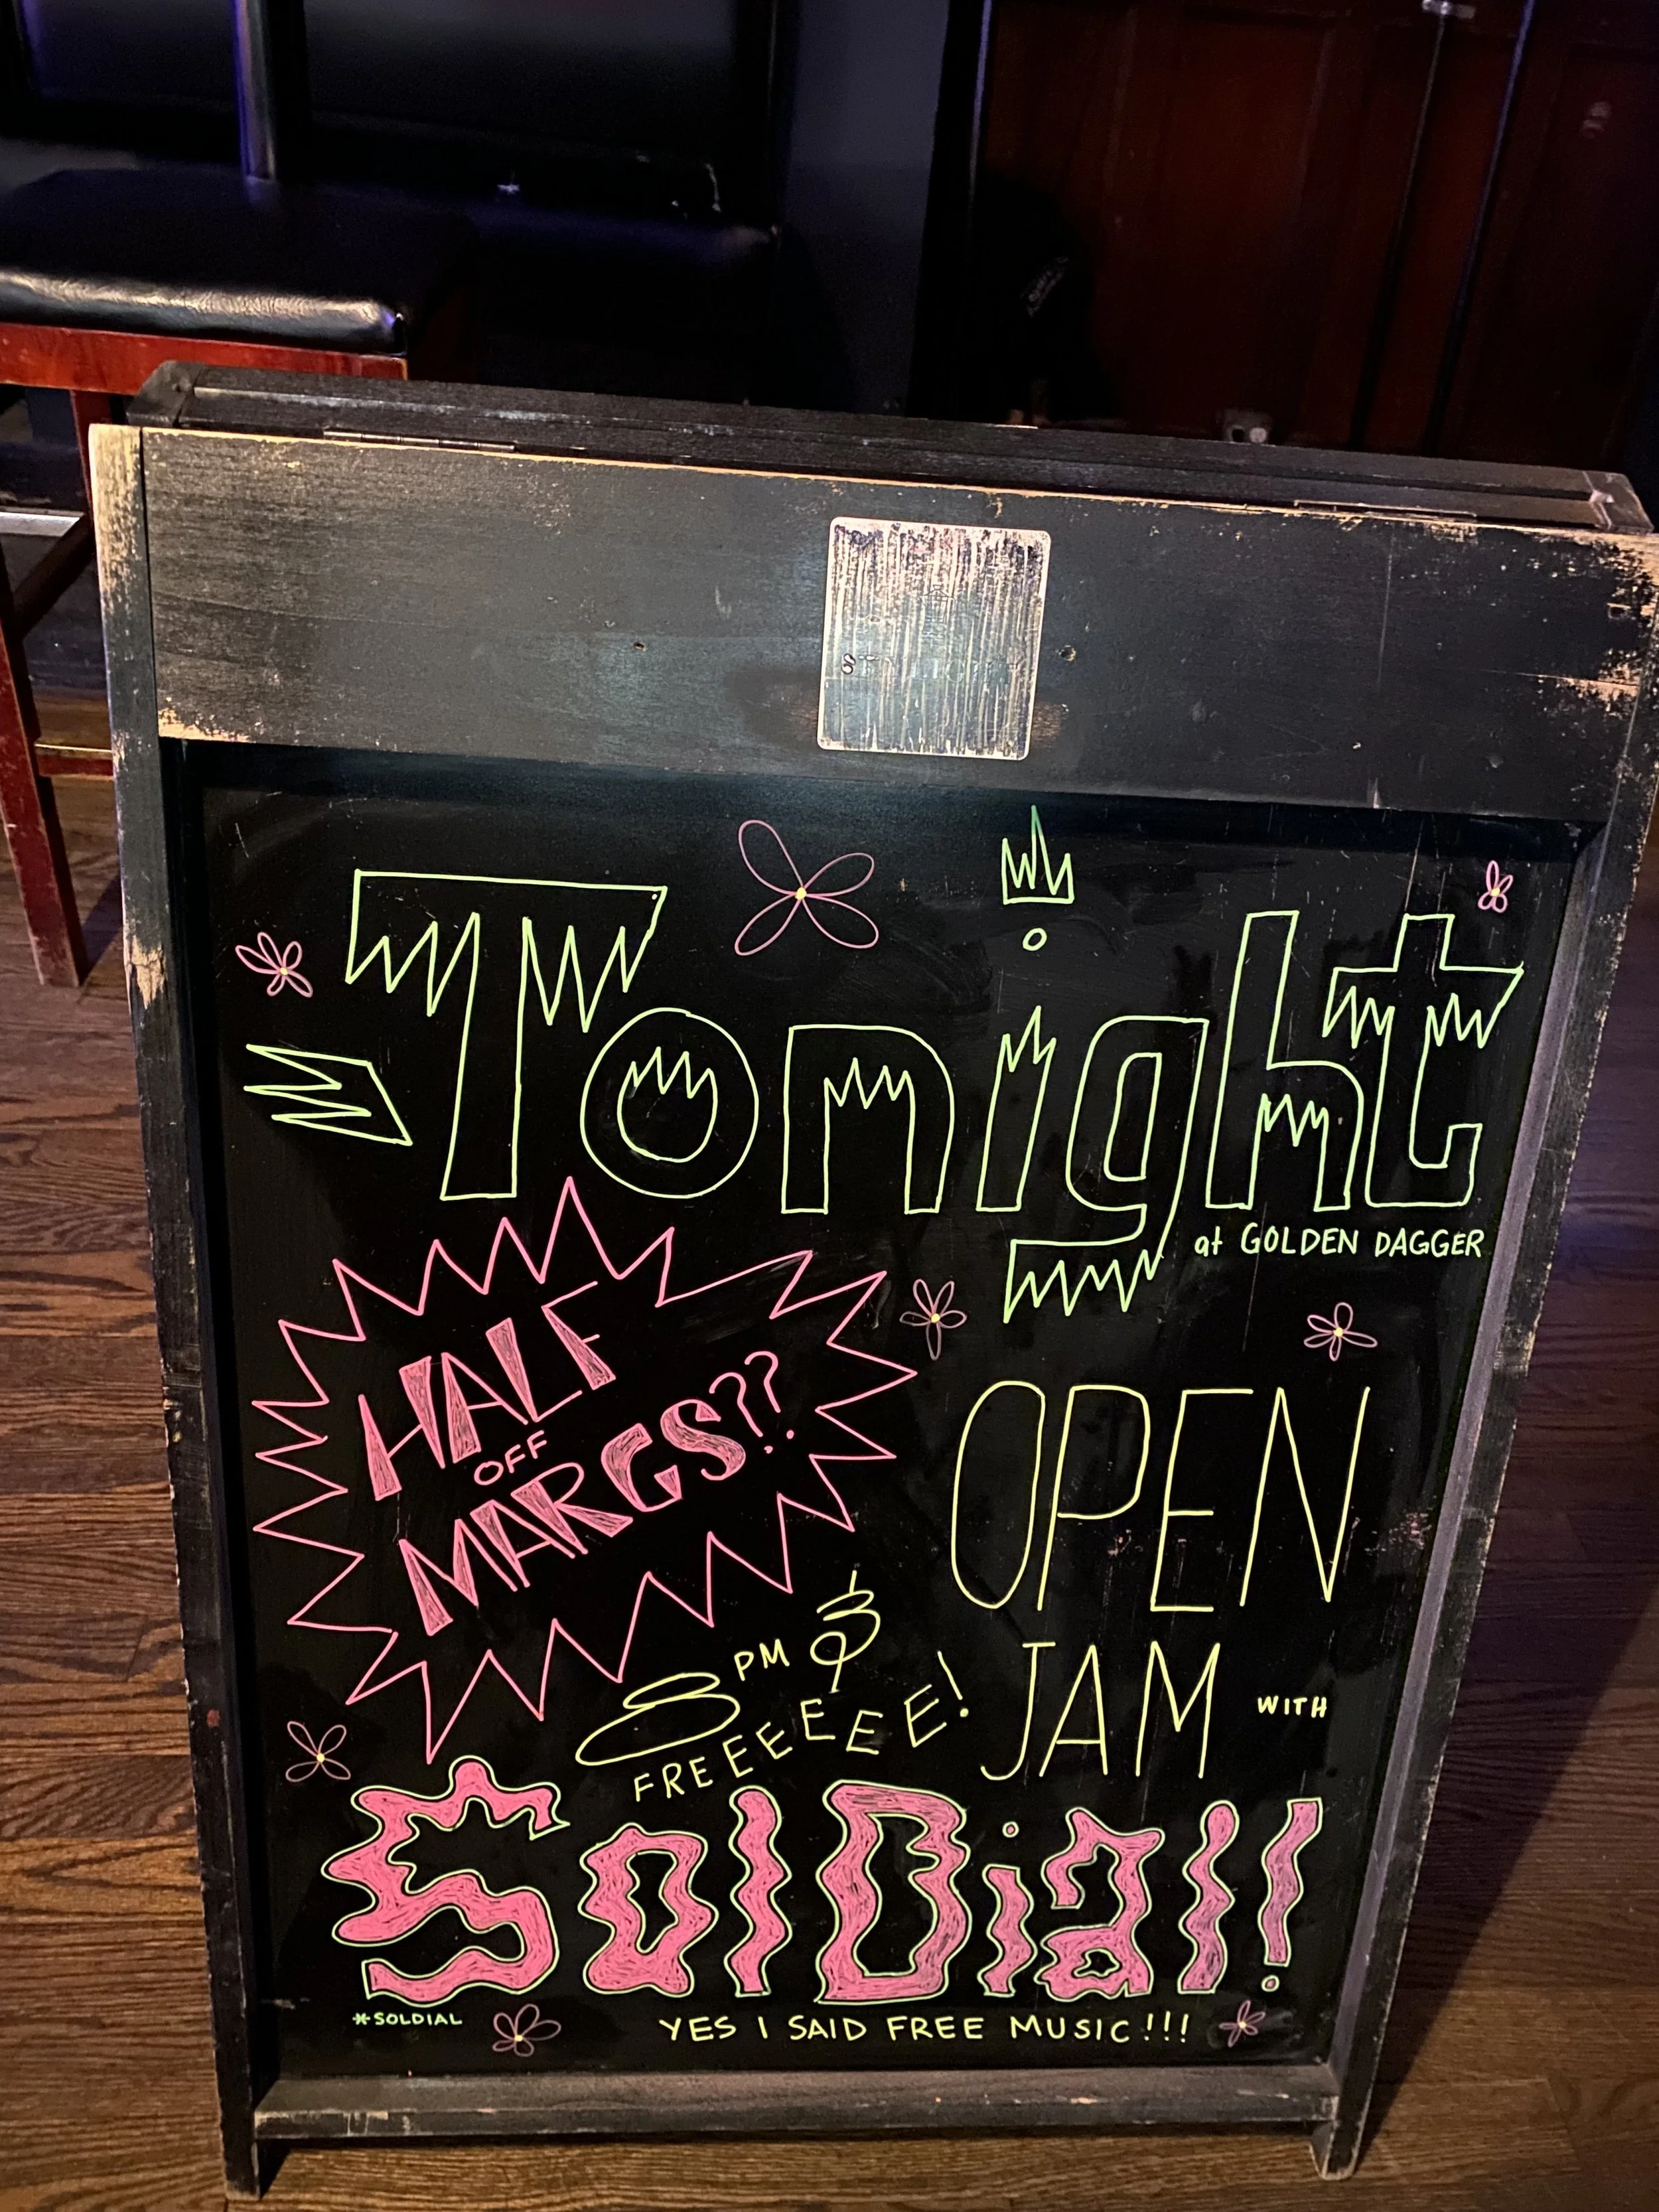 Tonight
at GOLDEN DAGGER
HALF
OFF
MARGS??
OPEN
JAM WITH
8 PM &
FREEEEEE!
SolDial!
*SOLDIAL
YES I SAID FREE MUSIC!!!